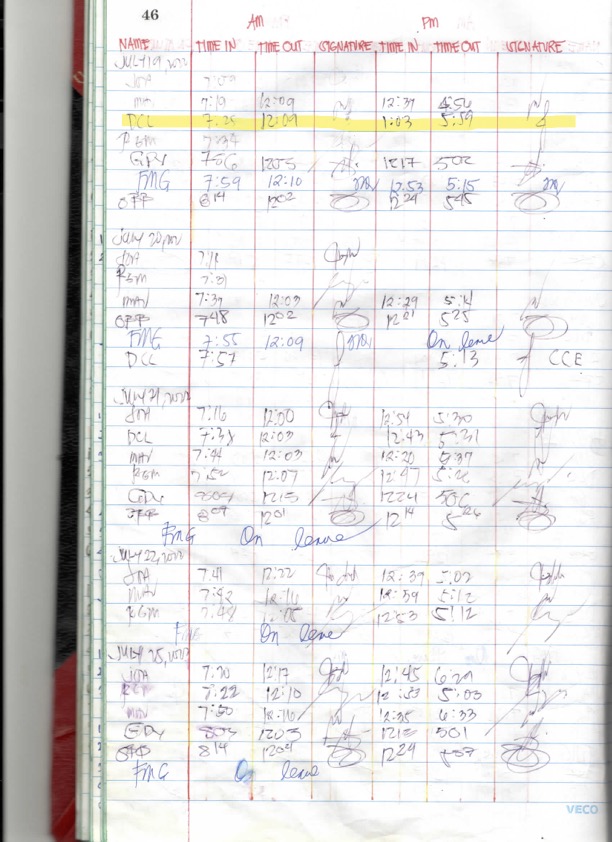 46
AM PM
NAME TIME IN TIME OUT SIGNATURE TIME IN TIME OUT SIGNATURE
JULY 19, 2022
JDA 7:09
MAV 7:19 12:09 12:37 4:54
DCL 7:25 12:09 1:03 5:59
RGM 7:34
GDV 756 1205 1217 502
FMG 7:59 12:10 12:53 5:15
OFP 814 1202 1224 545
JULY 20, 2022
JDA 7:18
RGM 7:31
MAV 7:37 12:03 12:29
OFP 748 1202 1221 525
FMG 7:55 12:09 On leave
DCL 7:57 5:13 CCE
JULY 21, 2022
JDA 7:16 12:00 12:54 5:30
DCL 7:38 12:03 12:43 5:31
MAV 7:44 12:03 12:20 5:37
RGM 7:52 12:07 12:47
GDV 1215 1224 506
OFP 809 1201 1214 526
FMG On leave
JULY 22, 2022
JDA 7:41 12:22 12:37 5:02
MAV 7:42 12:16 12:39 5:12
RGM 7:48 12:05 12:53 5:12
FMG On leave
JULY 25, 2022
JDA 7:20 12:17 12:45 6:29
RGM 7:22 12:10 12:53 5:03
MAV 7:50 12:16 12:35 6:33
GDV 803 1203 1215 501
OFP 814 1204 1224
FMG On leave
VECO